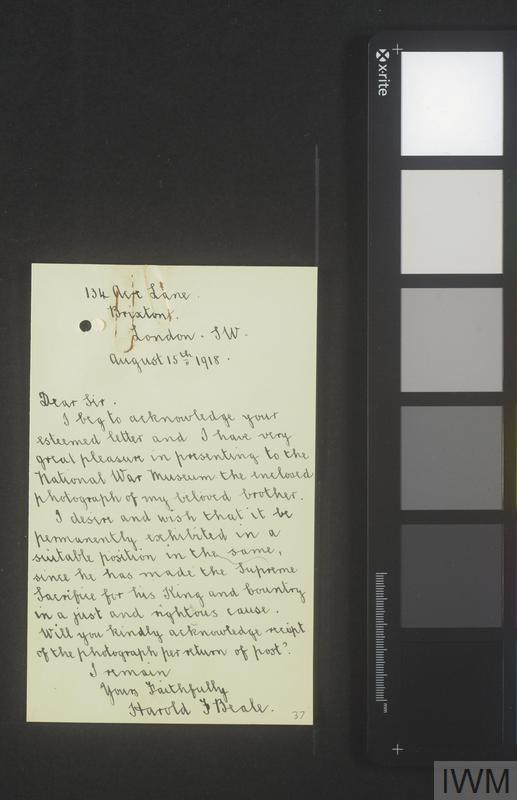 134 Acre Lane.
Brixton.
London. S.W.
August 15th 1918.
Dear Sir.
I beg to acknowledge your
esteemed letter and I have very
great pleasure in presenting to the
National War Museum the enclosed
photograph of my beloved brother.
I desire and wish that it be
permanently exhibited in a
suitable position in the same,
since he has made the Supreme
Sacrifice for his King and Country
in a just and rightous cause.
Will you kindly acknowledge receipt
of the photograph per return of post?
I remain
Yours Faithfully
Harold F Beale.
37
x-rite
mm
IWM